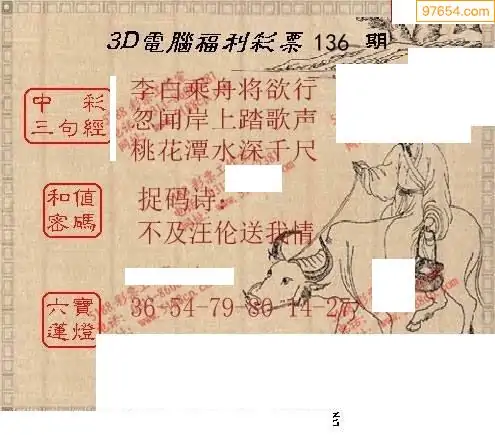 97654.com
3D電腦福利彩票 136 期
中彩
三句經
李白乘舟将欲行
忽闻岸上踏歌声
桃花潭水深千尺
和值
密碼
捉码诗:
不及汪伦送我情
六寶
蓮燈
36-54-79-80-14-27